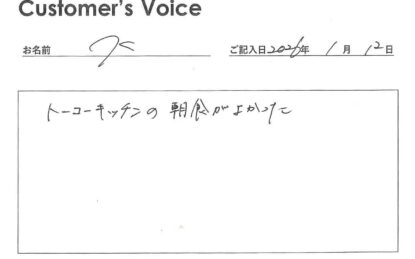 Customer's Voice
お名前 ご記入日2026年 1月 12日
トーコーキッチンの 朝食がよかった